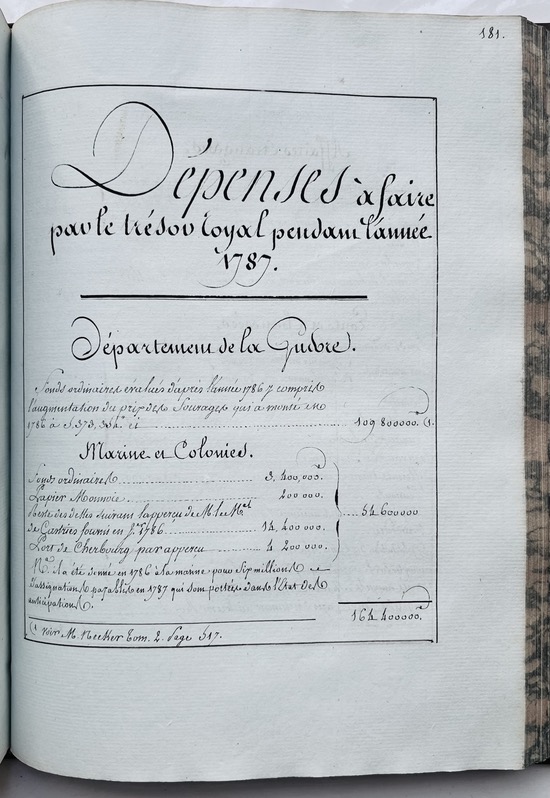 181.
Dépenses à faire
par le trésor royal pendant l'année
1787.
Département de la Guerre.
Fonds ordinaires evalués d'après l'année 1786 y compris
l'augmentation du prix des fourages qui a monté en
1786 à 5.573,334. ci ........ 109 800000. (1.
Marine et Colonies.
Fonds ordinaires ........ 3.400,000.
Papier Monnoie ........ 200 000.
Reste des dettes suivant l'apperçu de M. le M.al
de Castries fourni en J.er 1786 ........ 14.400000. ........ 54 600000
Port de Cherbourg par apperçu ........ 4 200 000.
N.a il a été donné en 1786 à la marine pour Six millions
d'assignations payables en 1787 qui sont portées dans l'Etat des
anticipations.
164 400000.
(1. voir M. Necker Tom. 2. Page 517.